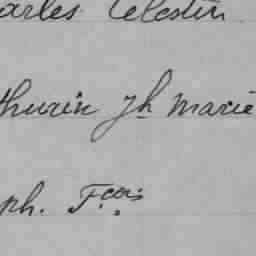 arles Celestin
thurin Jh Marie
ph. F.cois